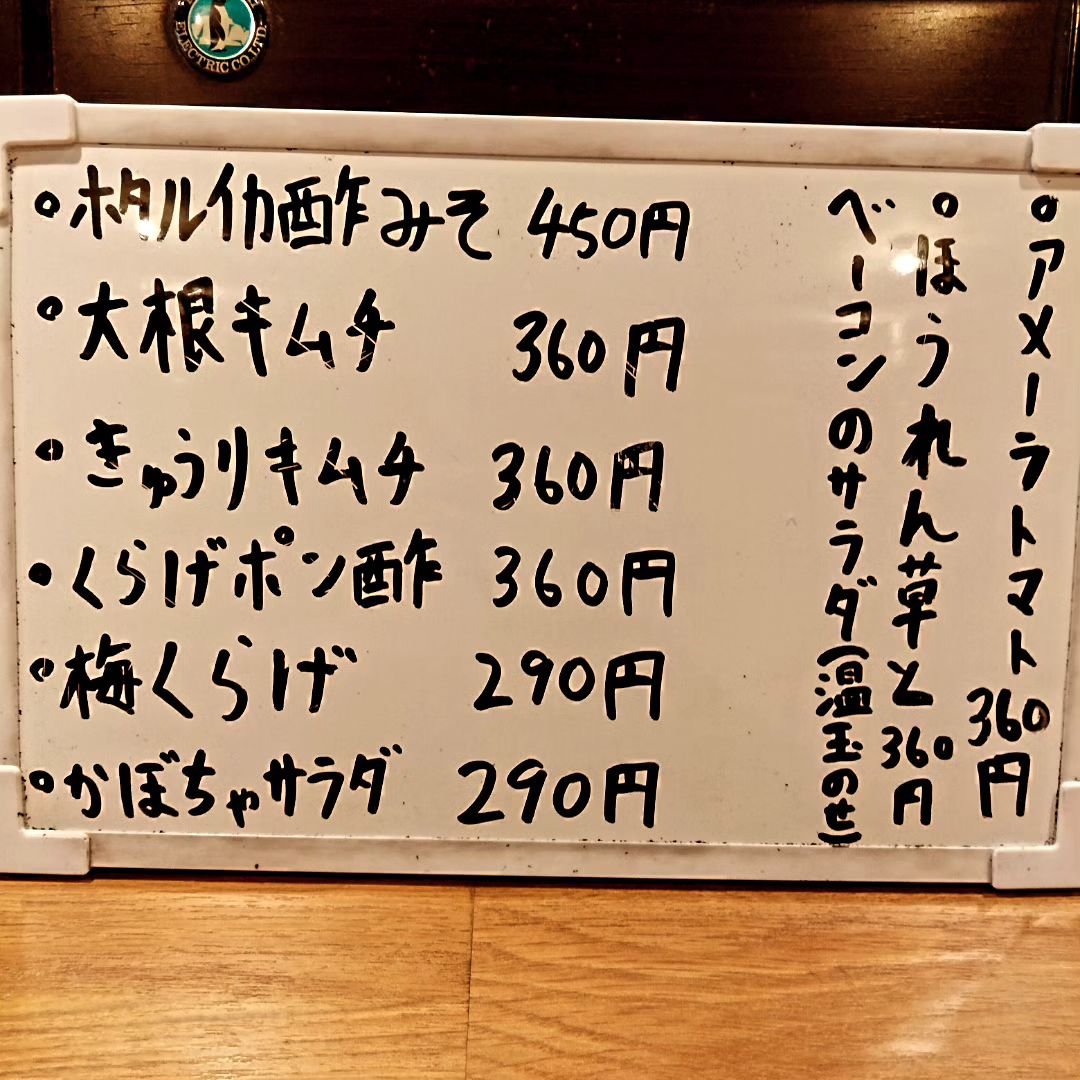 ELECTRIC CO.LTD.
。ホタルイカ酢みそ 450円
。大根キムチ 360円
。きゅうりキムチ 360円
。くらげポン酢 360円
。梅くらげ 290円
。かぼちゃサラダ 290円
。アメーラトマト 360円
。ほうれん草と 360円
ベーコンのサラダ(温玉のせ)